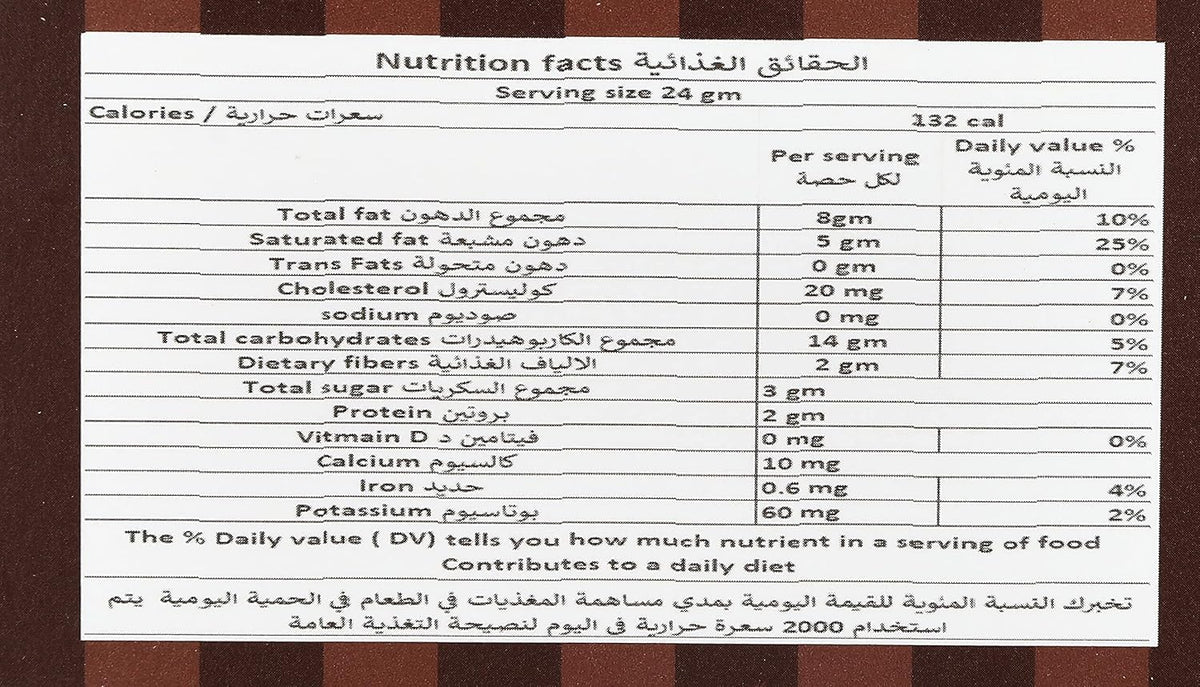 Nutrition facts الحقائق الغذائية
Serving size 24 gm
Calories / سعرات حرارية 132 cal
Per serving Daily value %
لكل حصة النسبة المئوية
اليومية
Total fat مجموع الدهون 8gm 10%
Saturated fat دهون مشبعة 5 gm 25%
Trans Fats دهون متحولة 0 gm 0%
Cholesterol كوليسترول 20 mg 7%
sodium صوديوم 0 mg 0%
Total carbohydrates مجموع الكاربوهيدرات 14 gm 5%
Dietary fibers الالياف الغذائية 2 gm 7%
Total sugar مجموع السكريات 3 gm
Protein بروتين 2 gm
Vitmain D فيتامين د 0 mg 0%
Calcium كالسيوم 10 mg
Iron حديد 0.6 mg 4%
Potassium بوتاسيوم 60 mg 2%
The % Daily value ( DV) tells you how much nutrient in a serving of food
Contributes to a daily diet
تخبرك النسبة المئوية للقيمة اليومية بمدي مساهمة المغذيات في الطعام في الحمية اليومية يتم
استخدام 2000 سعرة حرارية في اليوم لنصيحة التغذية العامة